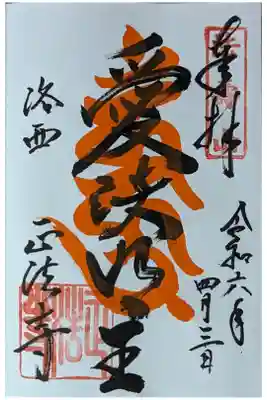 奉拝
令和六年
四月三日
愛染明王
洛西
正法寺